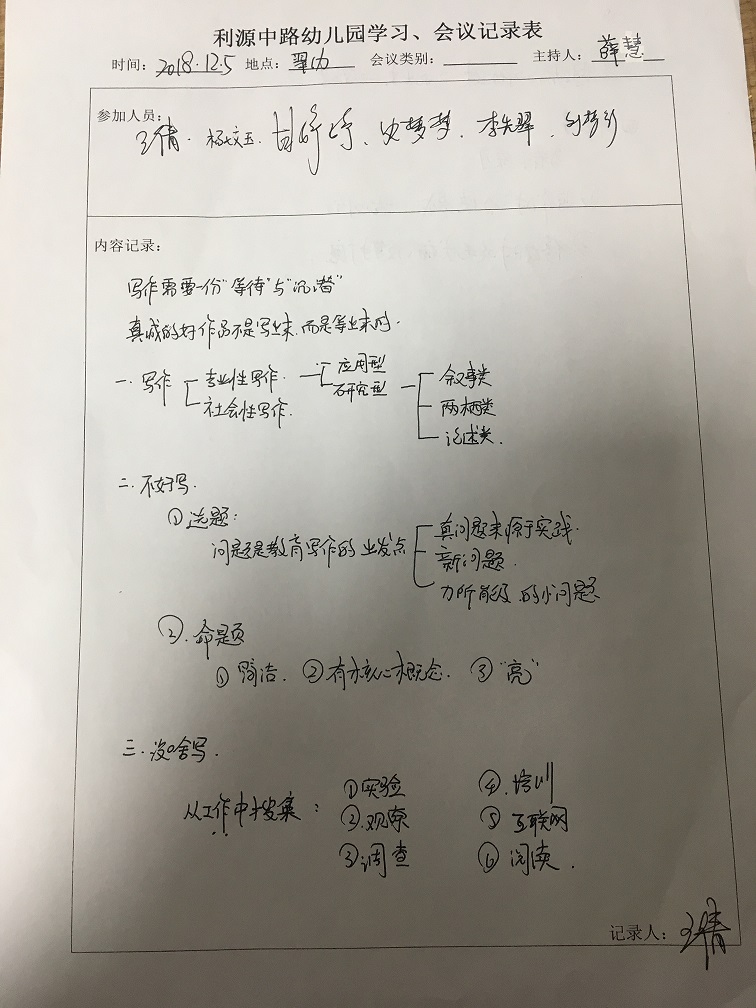 利源中路幼儿园学习、会议记录表
时间：2018.12.5 地点： 会议类别： 主持人：薛慧
参加人员：
王倩、杨文玉、甘婷婷、史梦梦、李失翠、刘梦
内容记录：
写作需要一份"等待"与"沉潜"
真诚的好作品不是写出来，而是等出来的。
一、写作 专业性写作. 应用型 叙事类
社会性写作. 研究型 两栖类
论述类.
二、不好写.
①选题：
问题是教育写作的出发点 真问题来源于实践.
新问题.
力所能及的小问题
②.命题
①简洁. ②有核心概念. ③"亮"
三、没啥写.
从工作中搜集： ①实验 ④.培训
②.观察 ⑤互联网
③调查 ⑥阅读.
记录人：王倩